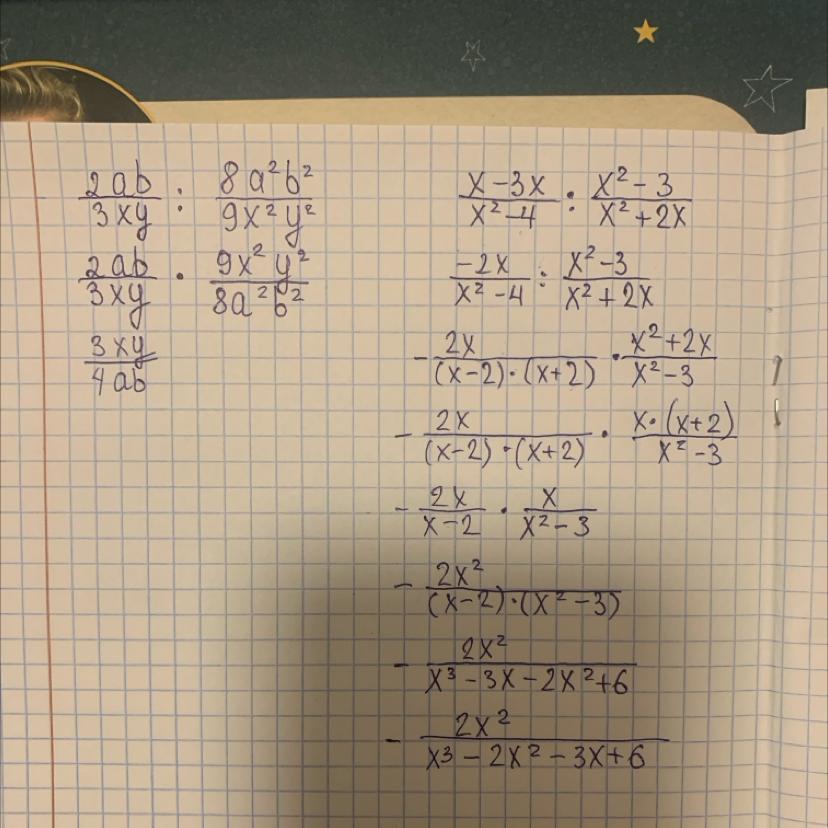 2ab/3xy : 8a²b²/9x²y²
2ab/3xy · 9x²y²/8a²b²
3xy/4ab
x-3x/x²-4 : x²-3/x²+2x
-2x/x²-4 : x²-3/x²+2x
- 2x/(x-2)·(x+2) · x²+2x/x²-3
- 2x/(x-2)·(x+2) · x·(x+2)/x²-3
- 2x/x-2 · x/x²-3
- 2x²/(x-2)·(x²-3)
- 2x²/x³-3x-2x²+6
- 2x²/x³-2x²-3x+6